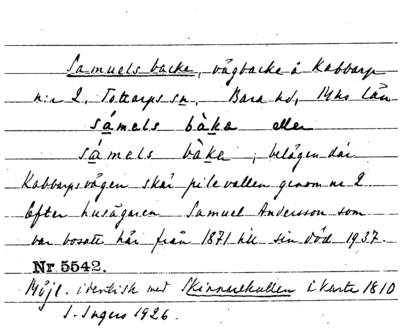 Samuels backe, vägbacke å Kabbarp
n:r 2, Tottarps sn, Bara hd, Mhs län
sámels bàka eller
sámels bàka, belägen där
Kabbarpsvägen skär pilevallen genom nr 2
Efter husägaren Samuel Andersson som
var bosatt här från 1871 till sin död 1937.
Nr. 5542.
Möjl. identisk med Skinnarekullen i karta 1810
I. Ingers 1926.